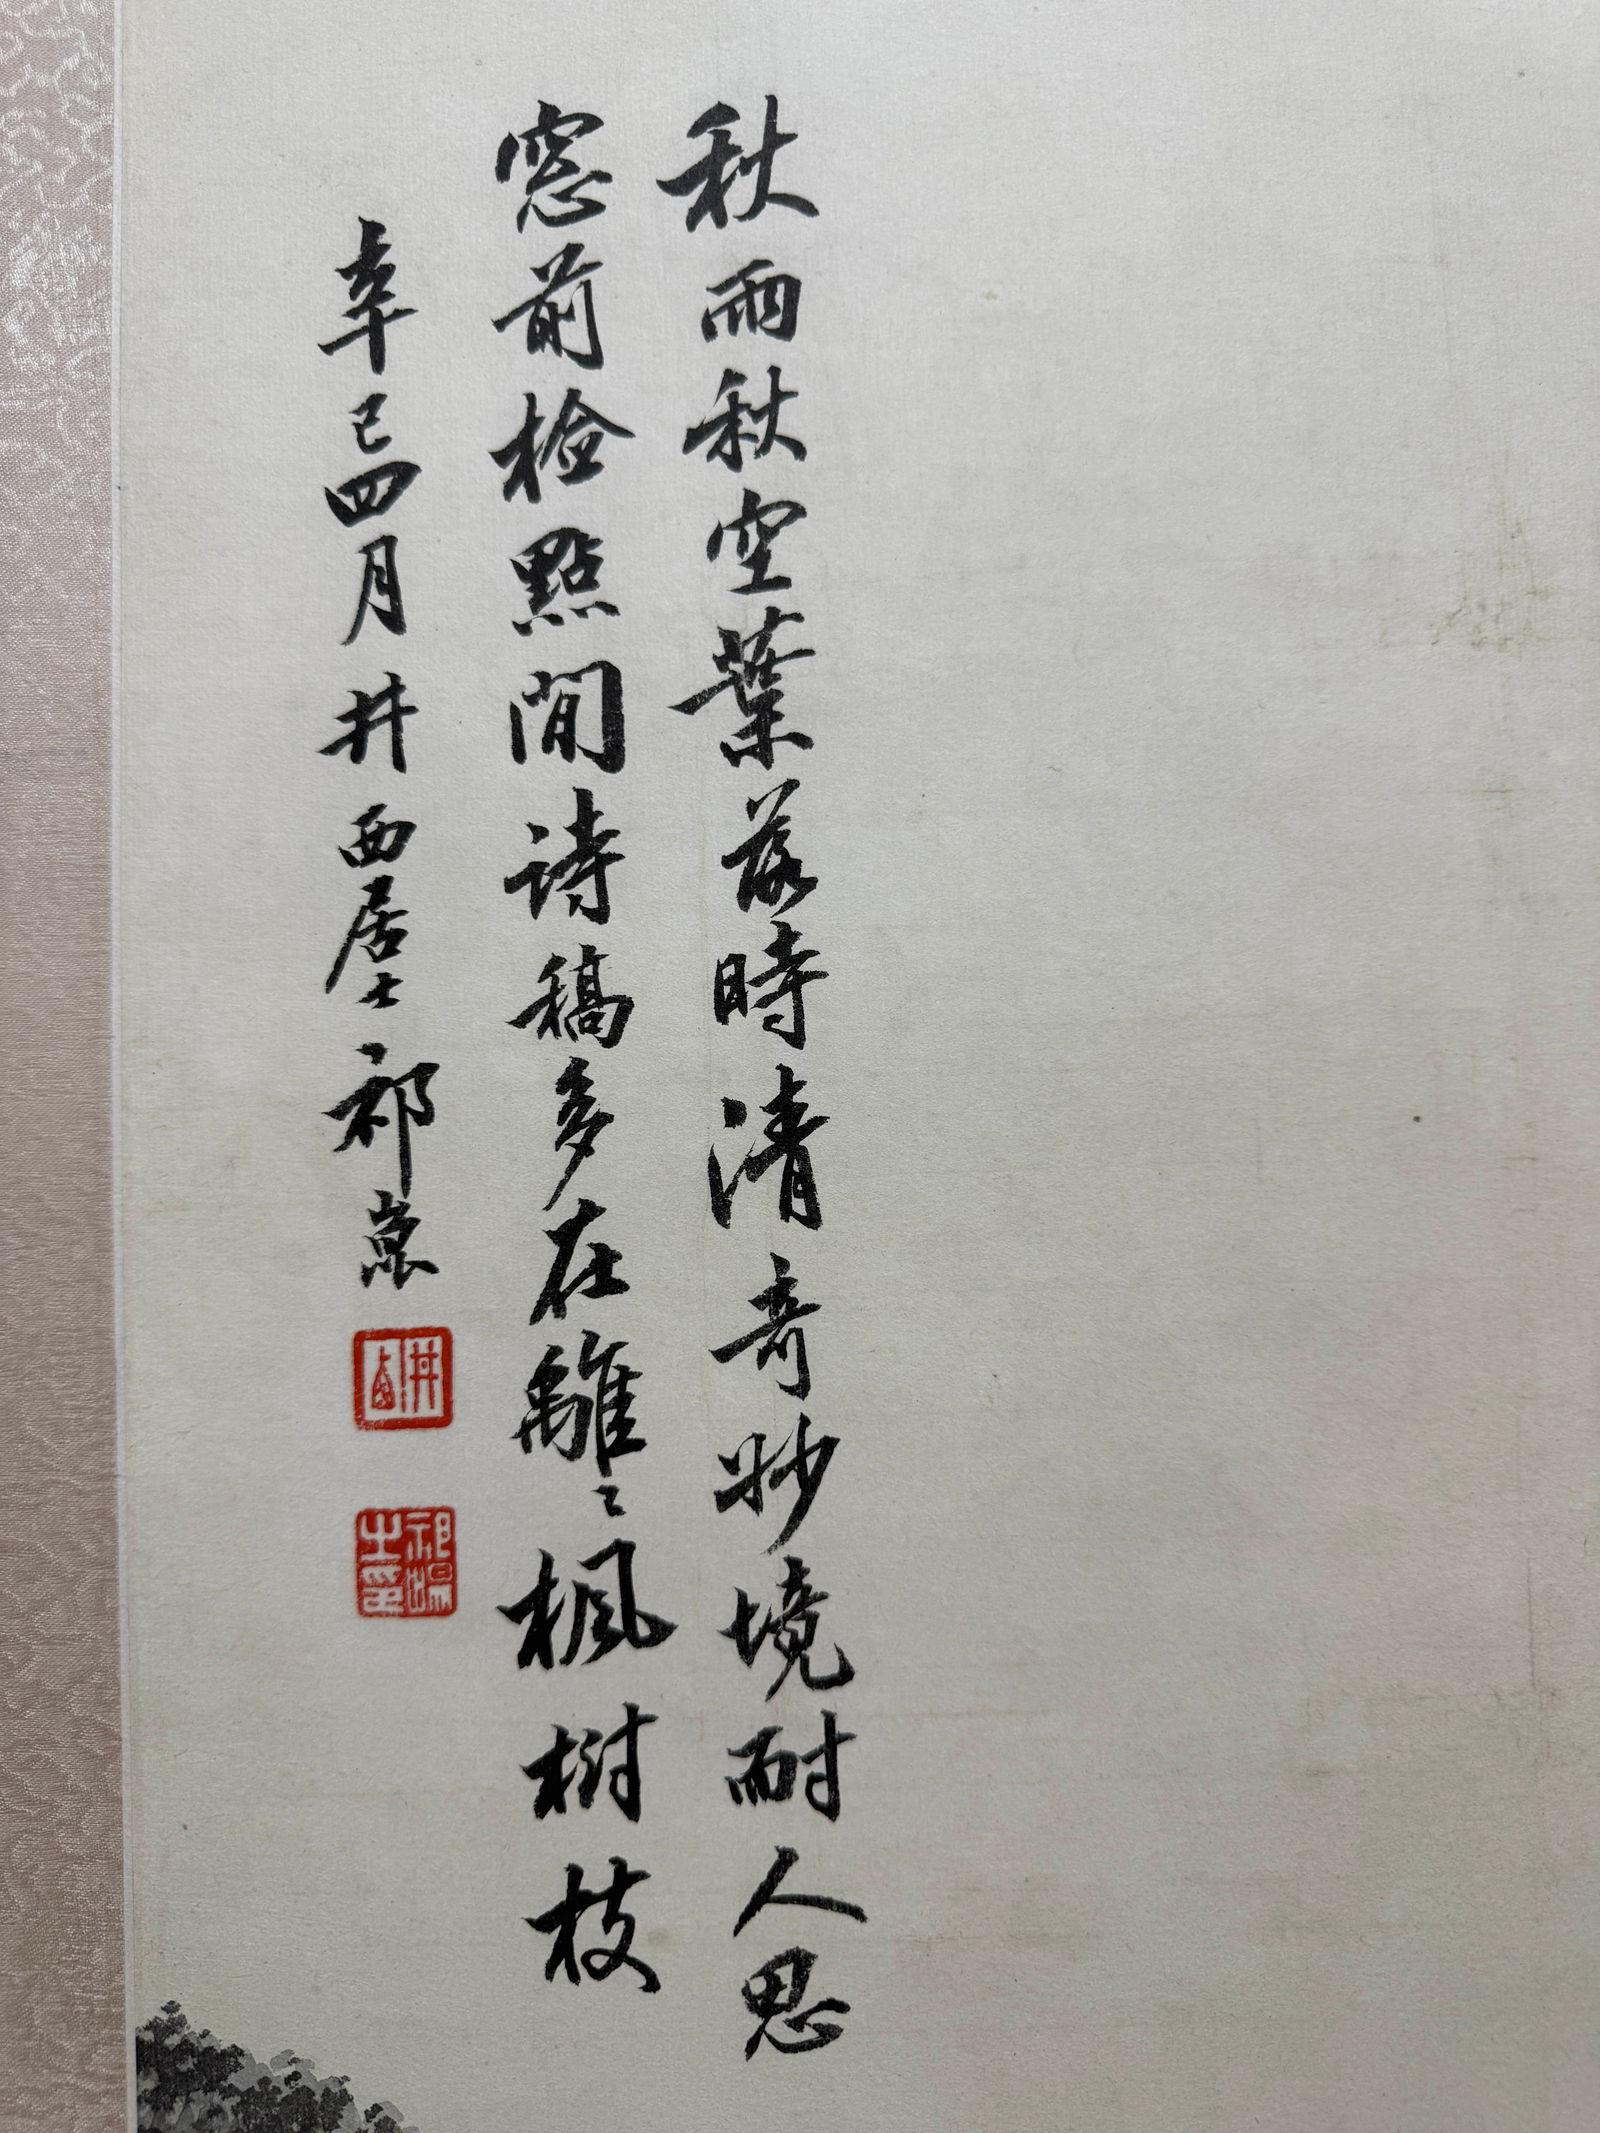 秋雨秋空葉落時清奇妙境耐人思
窓前檢點閒詩稿多在離〻楓樹枝
辛巳四月井西居士祁崑
井西
祁崑之印